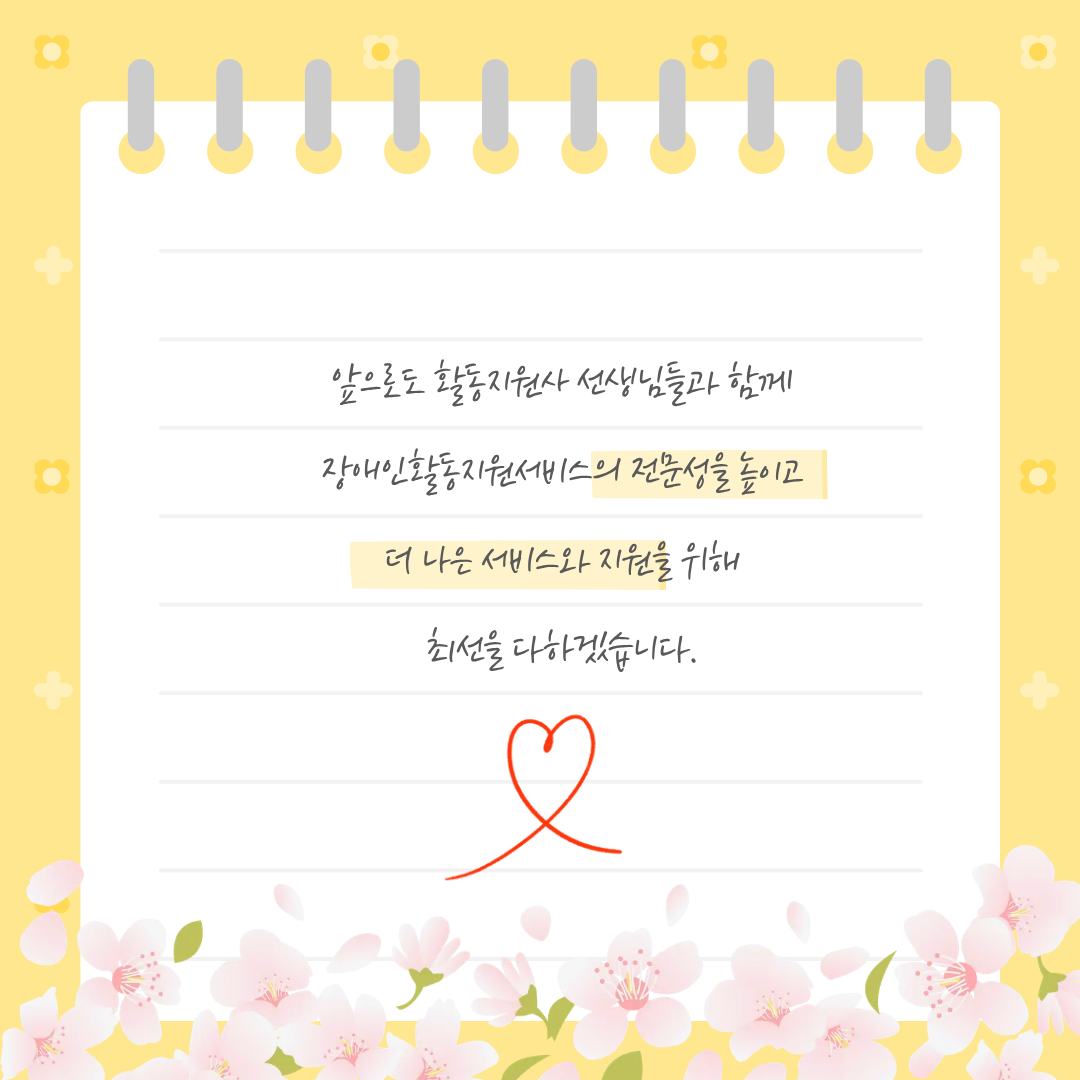 앞으로도 활동지원사 선생님들과 함께
장애인활동지원서비스의 전문성을 높이고
더 나은 서비스와 지원을 위해
최선을 다하겠습니다.